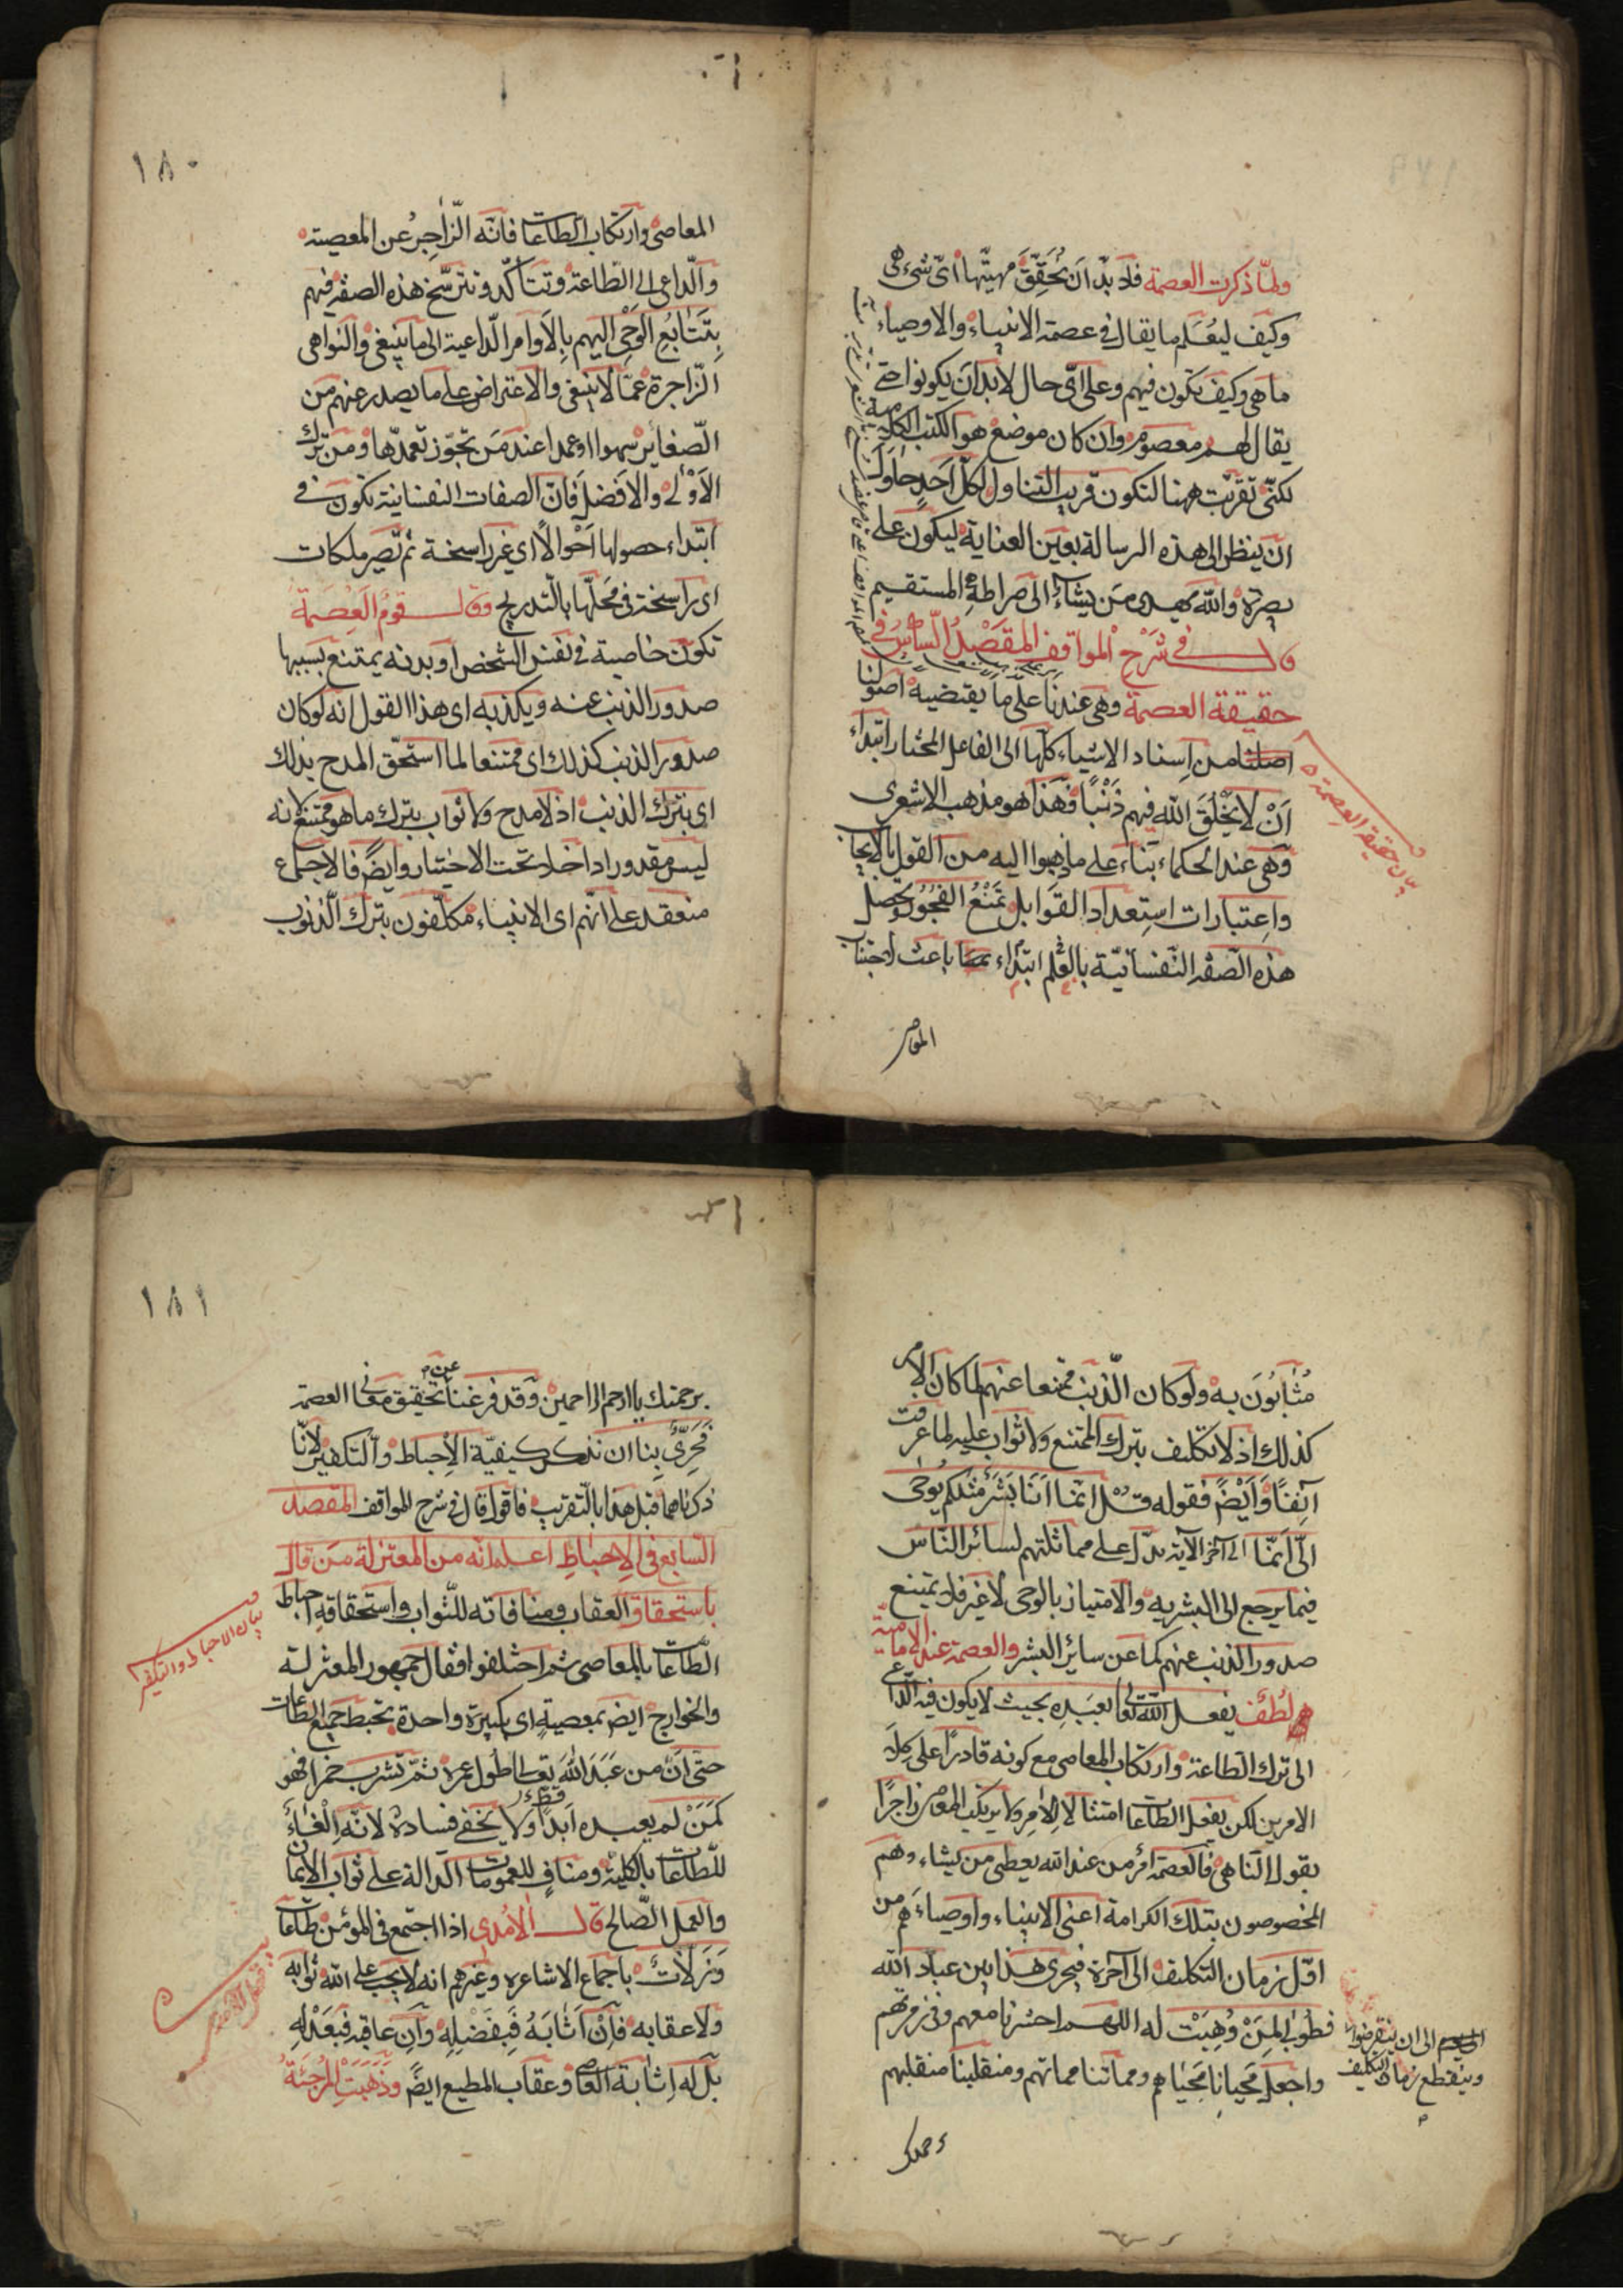 ولما ذكرت العصمة فلا بد ان تحقق مهيتها اى شىء هى
وكيف ليعلم ما يقال فى عصمة الانبياء والاوصياء
ما هى وكيف تكون فيهم وعلى اى حال لا بد ان يكونوا حتى
يقال لهم معصوم وان كان موضع هو الكتب الكلامية
لكنى تقربت ههنا لتكون قريب التناول لكل احد حاول
ان ينظر الى هذه الرسالة بعين العناية ليكون على
بصيرة والله يهدى من يشاء الى صراطه المستقيم
قال فى شرح المواقف المقصد السادس فى
حقيقة العصمة وهى عندنا على ما يقتضيه اصولنا
اصلنا من اسناد الاشياء كلها الى الفاعل المختار ابتداء
ان لا يخلق الله فيهم ذنبا فهذا هو مذهب الاشعرى
وهى عند الحكماء بناء على ما ذهبوا اليه من القول بالايجاب
واعتبارات استعداد القوابل تمنع الفجور وتحصل
هذه الصفة النفسانية بالعلم ابتداء باعث لاجتناب
المعاصى
بيان حقيقة العصمة
١٨٠
المعاصى وارتكاب الطاعات فانه الزاجر عن المعصية
والداعى الى الطاعة وتتأكد وتترسخ هذه الصفة فيهم
بتتابع الوحى اليهم بالاوامر الداعية الى ما ينبغى والنواهى
الزاجرة عما لا ينبغى والاعتراض على ما يصدر عنهم من
الصغائر سهوا او عمدا عند من تجوز تعمدها ومن ترك
الاولى والافضل فان الصفات النفسانية تكون فى
ابتداء حصولها احوالا اى غير راسخة ثم تصير ملكات
اى راسخة فى محلها بالتدريج وقال قوم العصمة
تكون خاصية فى نفس الشخص او بدنه يمتنع بسببها
صدور الذنب عنه ويكذبه اى هذا القول انه لو كان
صدور الذنب كذلك اى ممتنعا لما استحق المدح بذلك
اى بترك الذنب اذ لا مدح ولا ثواب بترك ما هو ممتنع لانه
ليس مقدورا داخلا تحت الاختيار وايضا فالاجماع
منعقد على انهم اى الانبياء مكلفون بترك الذنوب
مثابون به ولو كان الذنب ممتنعا عنهم لما كان الامر
كذلك اذ لا تكليف بترك الممتنع ولا ثواب عليه لما عرفت
آنفا وايضا فقوله قل انما انا بشر مثلكم يوحى
الى انما الى آخر الآية يدل على مماثلتهم لسائر الناس
فيما يرجع الى البشرية والامتياز بالوحى لا غير فلا يمتنع
صدور الذنب عنهم كما عن سائر البشر والعصمة عند الامامية
لطف يفعل الله تعالى بعبده بحيث لا يكون فيه الداعى
الى ترك الطاعة وارتكاب المعاصى مع كونه قادرا على كلا
الامرين لكن يفعل الطاعات امتثالا للامر ولا يرتكب المعاصى زاجرا
بقول الناهى فالعصمة امر من عند الله يعطى من يشاء وهم
المخصوصون بتلك الكرامة اعنى الانبياء واوصياءهم من
اول زمان التكليف الى آخره فيجرى هذا بين عباد الله
الى ان ينقرضوا
وينقطع زمان التكليف
فطوبى لمن وهبت له اللهم احشرنا معهم وفى زمرتهم
واجعل محيانا محياهم ومماتنا مماتهم ومنقلبنا منقلبهم
١٨١
برحمتك يا ارحم الراحمين وقد فرغنا عن تحقيق معنى العصمة
فحرى بنا ان نذكر كيفية الاحباط والتكفير لانا
ذكرناهما قبل هذا بالتقريب فاقول قال فى شرح المواقف المقصد
السابع فى الاحباط اعلم انه من المعتزلة من قال
باستحقاق العقاب ومنافاته للثواب واستحقاقه احباط
الطاعات بالمعاصى ثم اختلفوا فقال جمهور المعتزلة
والخوارج ايضا بمعصية اى كبيرة واحدة تحبط جميع الطاعات
حتى ان من عبد الله تعالى طول عمره ثم شرب خمرا فهو
كمن لم يعبده ابدا ولا يخفى فساده لانه الغاء
للطاعات بالكلية ومناف للعمومات الدالة على ثواب الايمان
والعمل الصالح قال الآمدى اذا اجتمع فى المؤمن طاعات
وزلات باجماع الاشاعره وغيرهم انه لا يجب على الله ثوابه
ولا عقابه فان اثابه فبفضله وان عاقبه فبعدله
بل له اثابة العاصى وعقاب المطيع ايضا وذهبت المرجئة
بيان الاحباط والتكفير